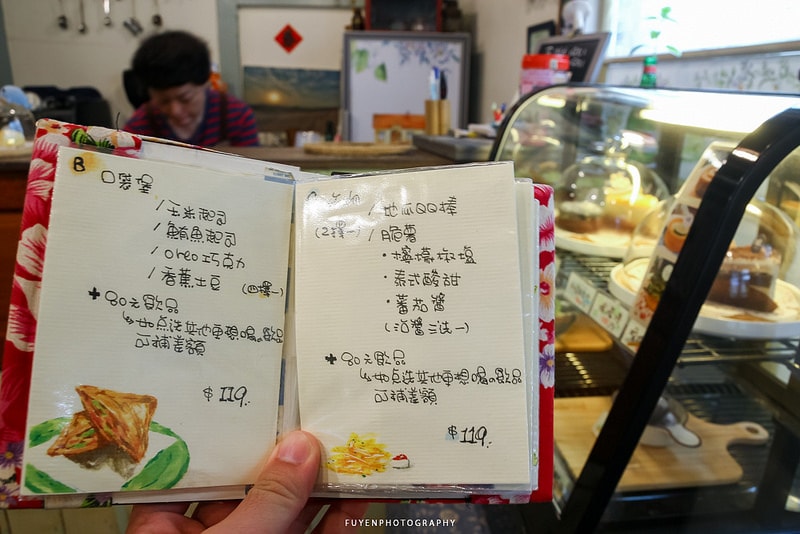 B
口袋堡
/玉米起司
/鮪魚起司
/oreo巧克力
/香蕉土豆 (四擇一)
+80元飲品
↳如点选其他更想喝の飲品
可補差額
$119.
(2擇一)
/地瓜QQ棒
/脆薯
・檸檬椒塩
・泰式酸甜
・蕃茄醬
(沾醬三选一)
+80元飲品
↳如点选其他更想喝の飲品
可補差額
$119.
FUYENPHOTOGRAPHY